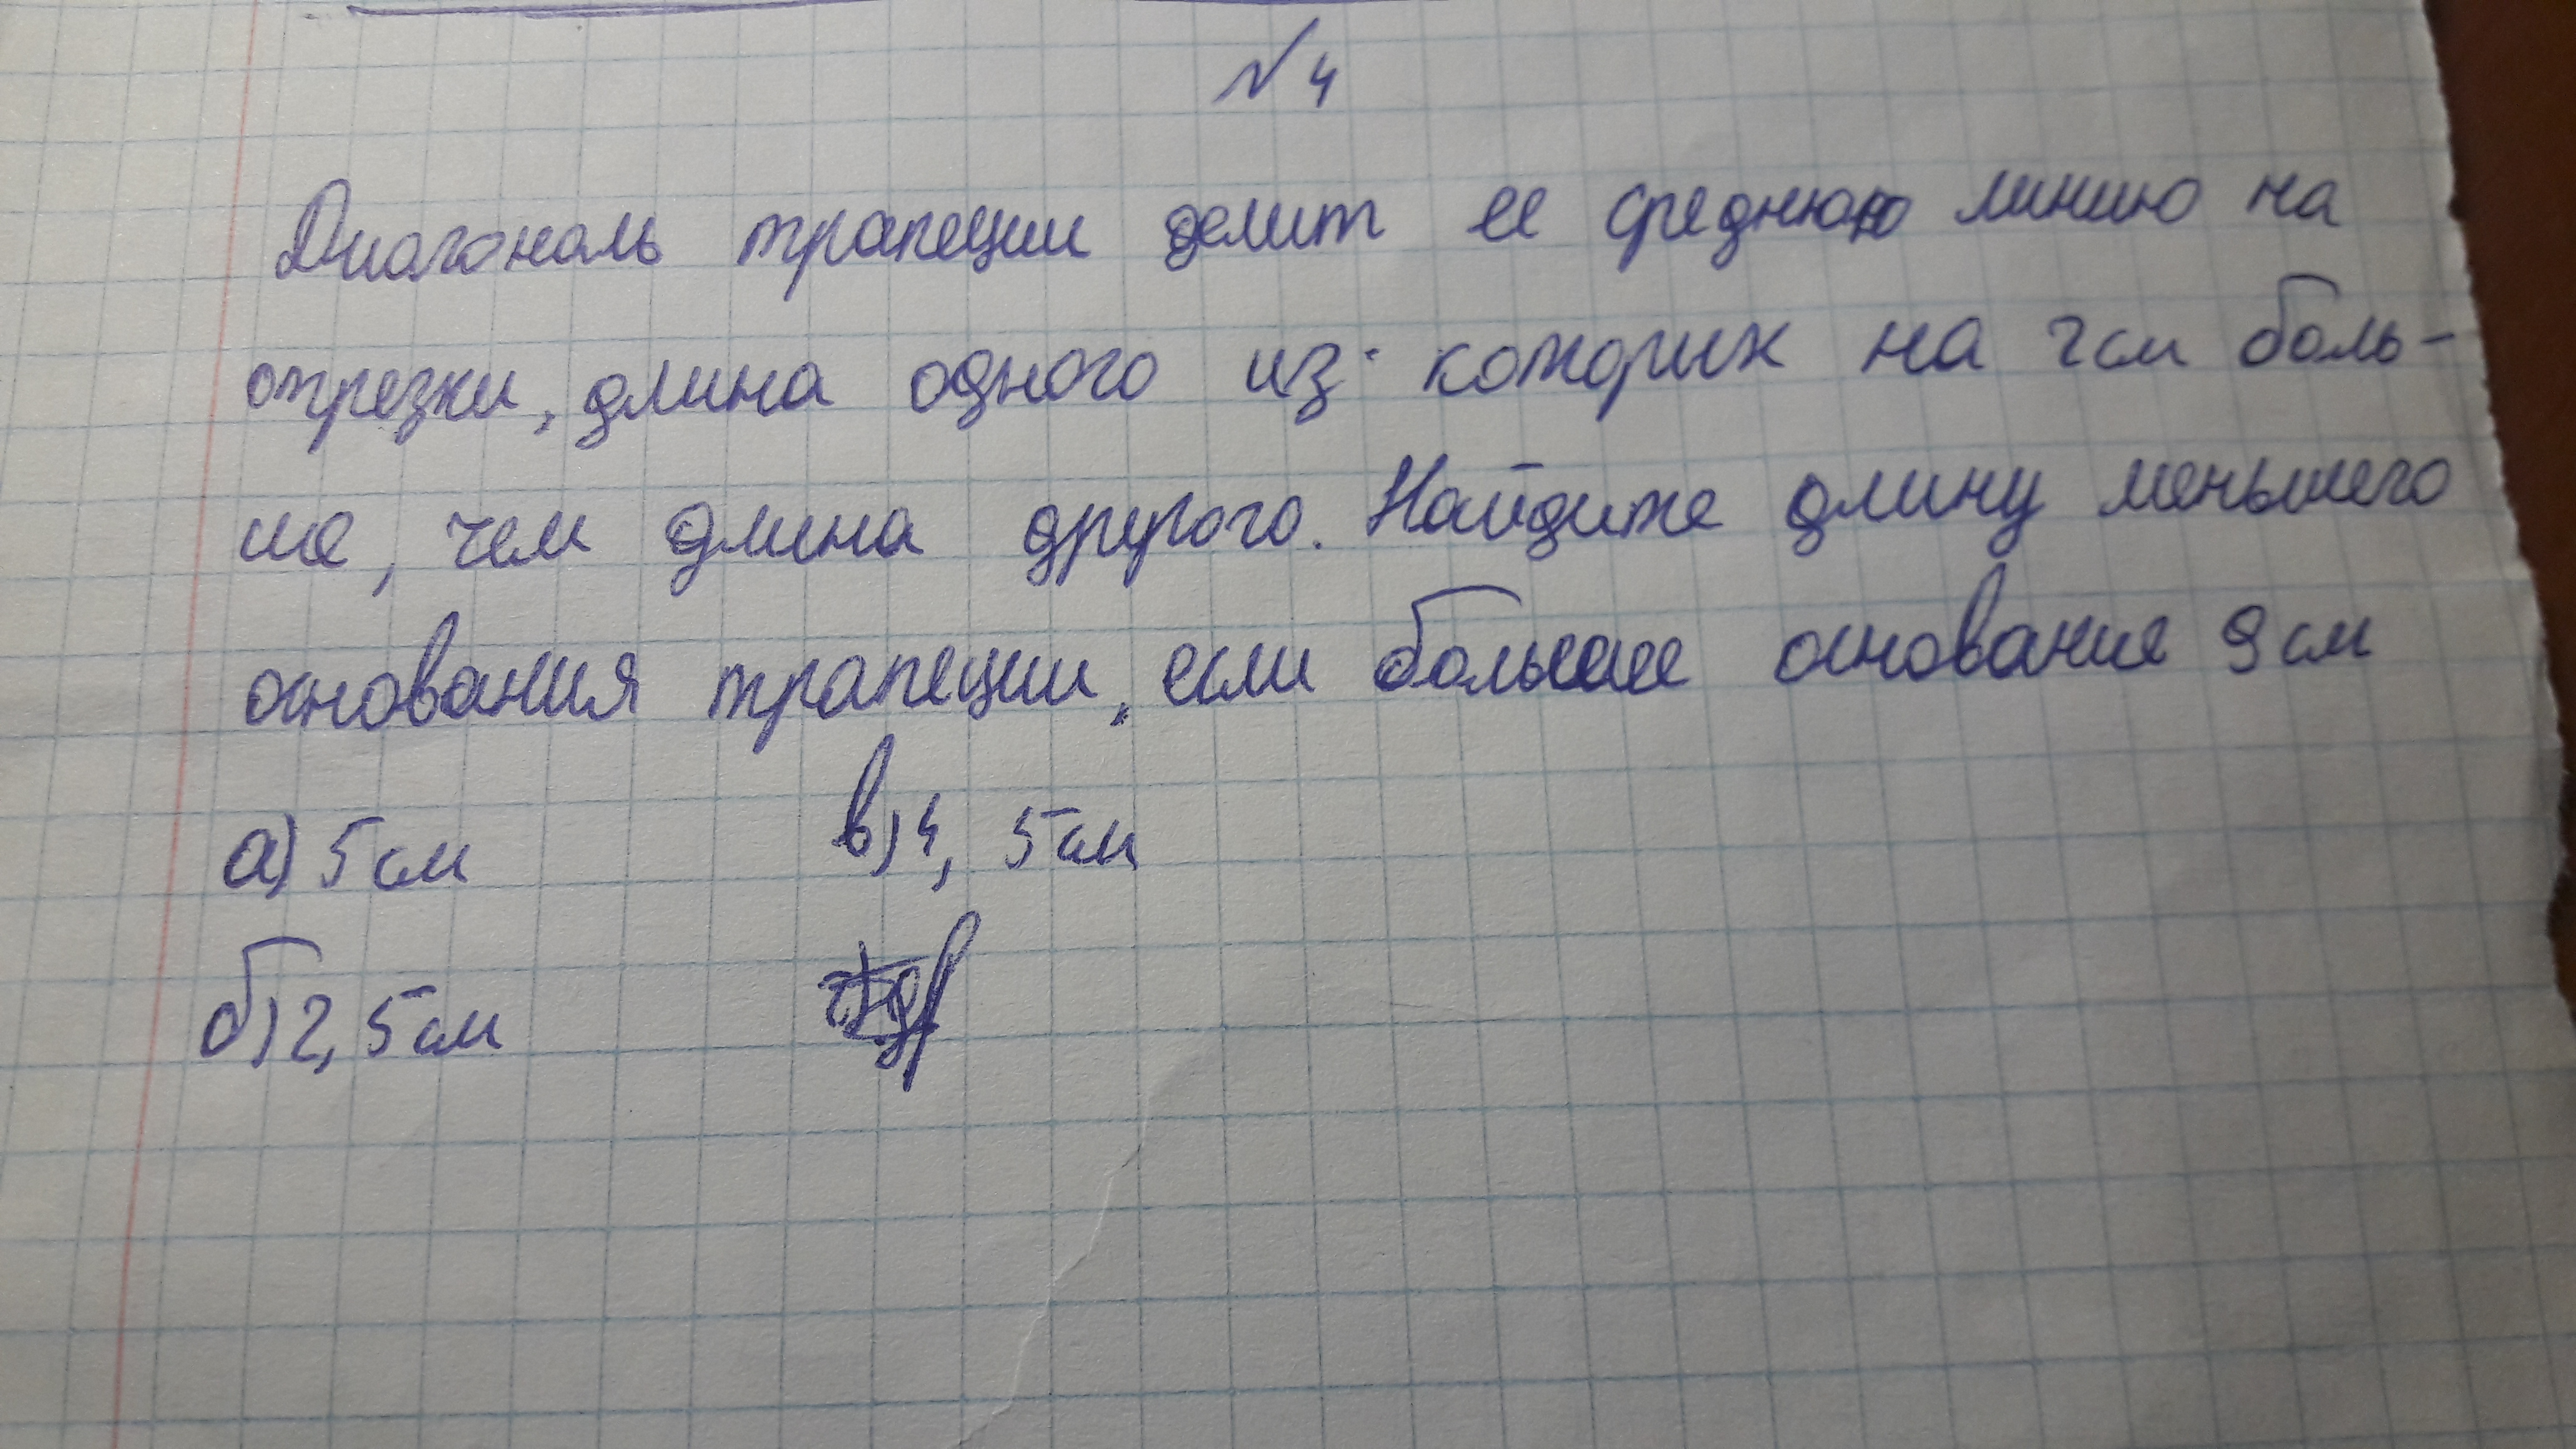 № 4
Диагональ трапеции делит ее среднюю линию на
отрезки, длина одного из которых на 2 см боль-
ше, чем длина другого. Найдите длину меньшего
основания трапеции, если большее основание 9 см
а) 5 см в) 4, 5 см
б) 2, 5 см